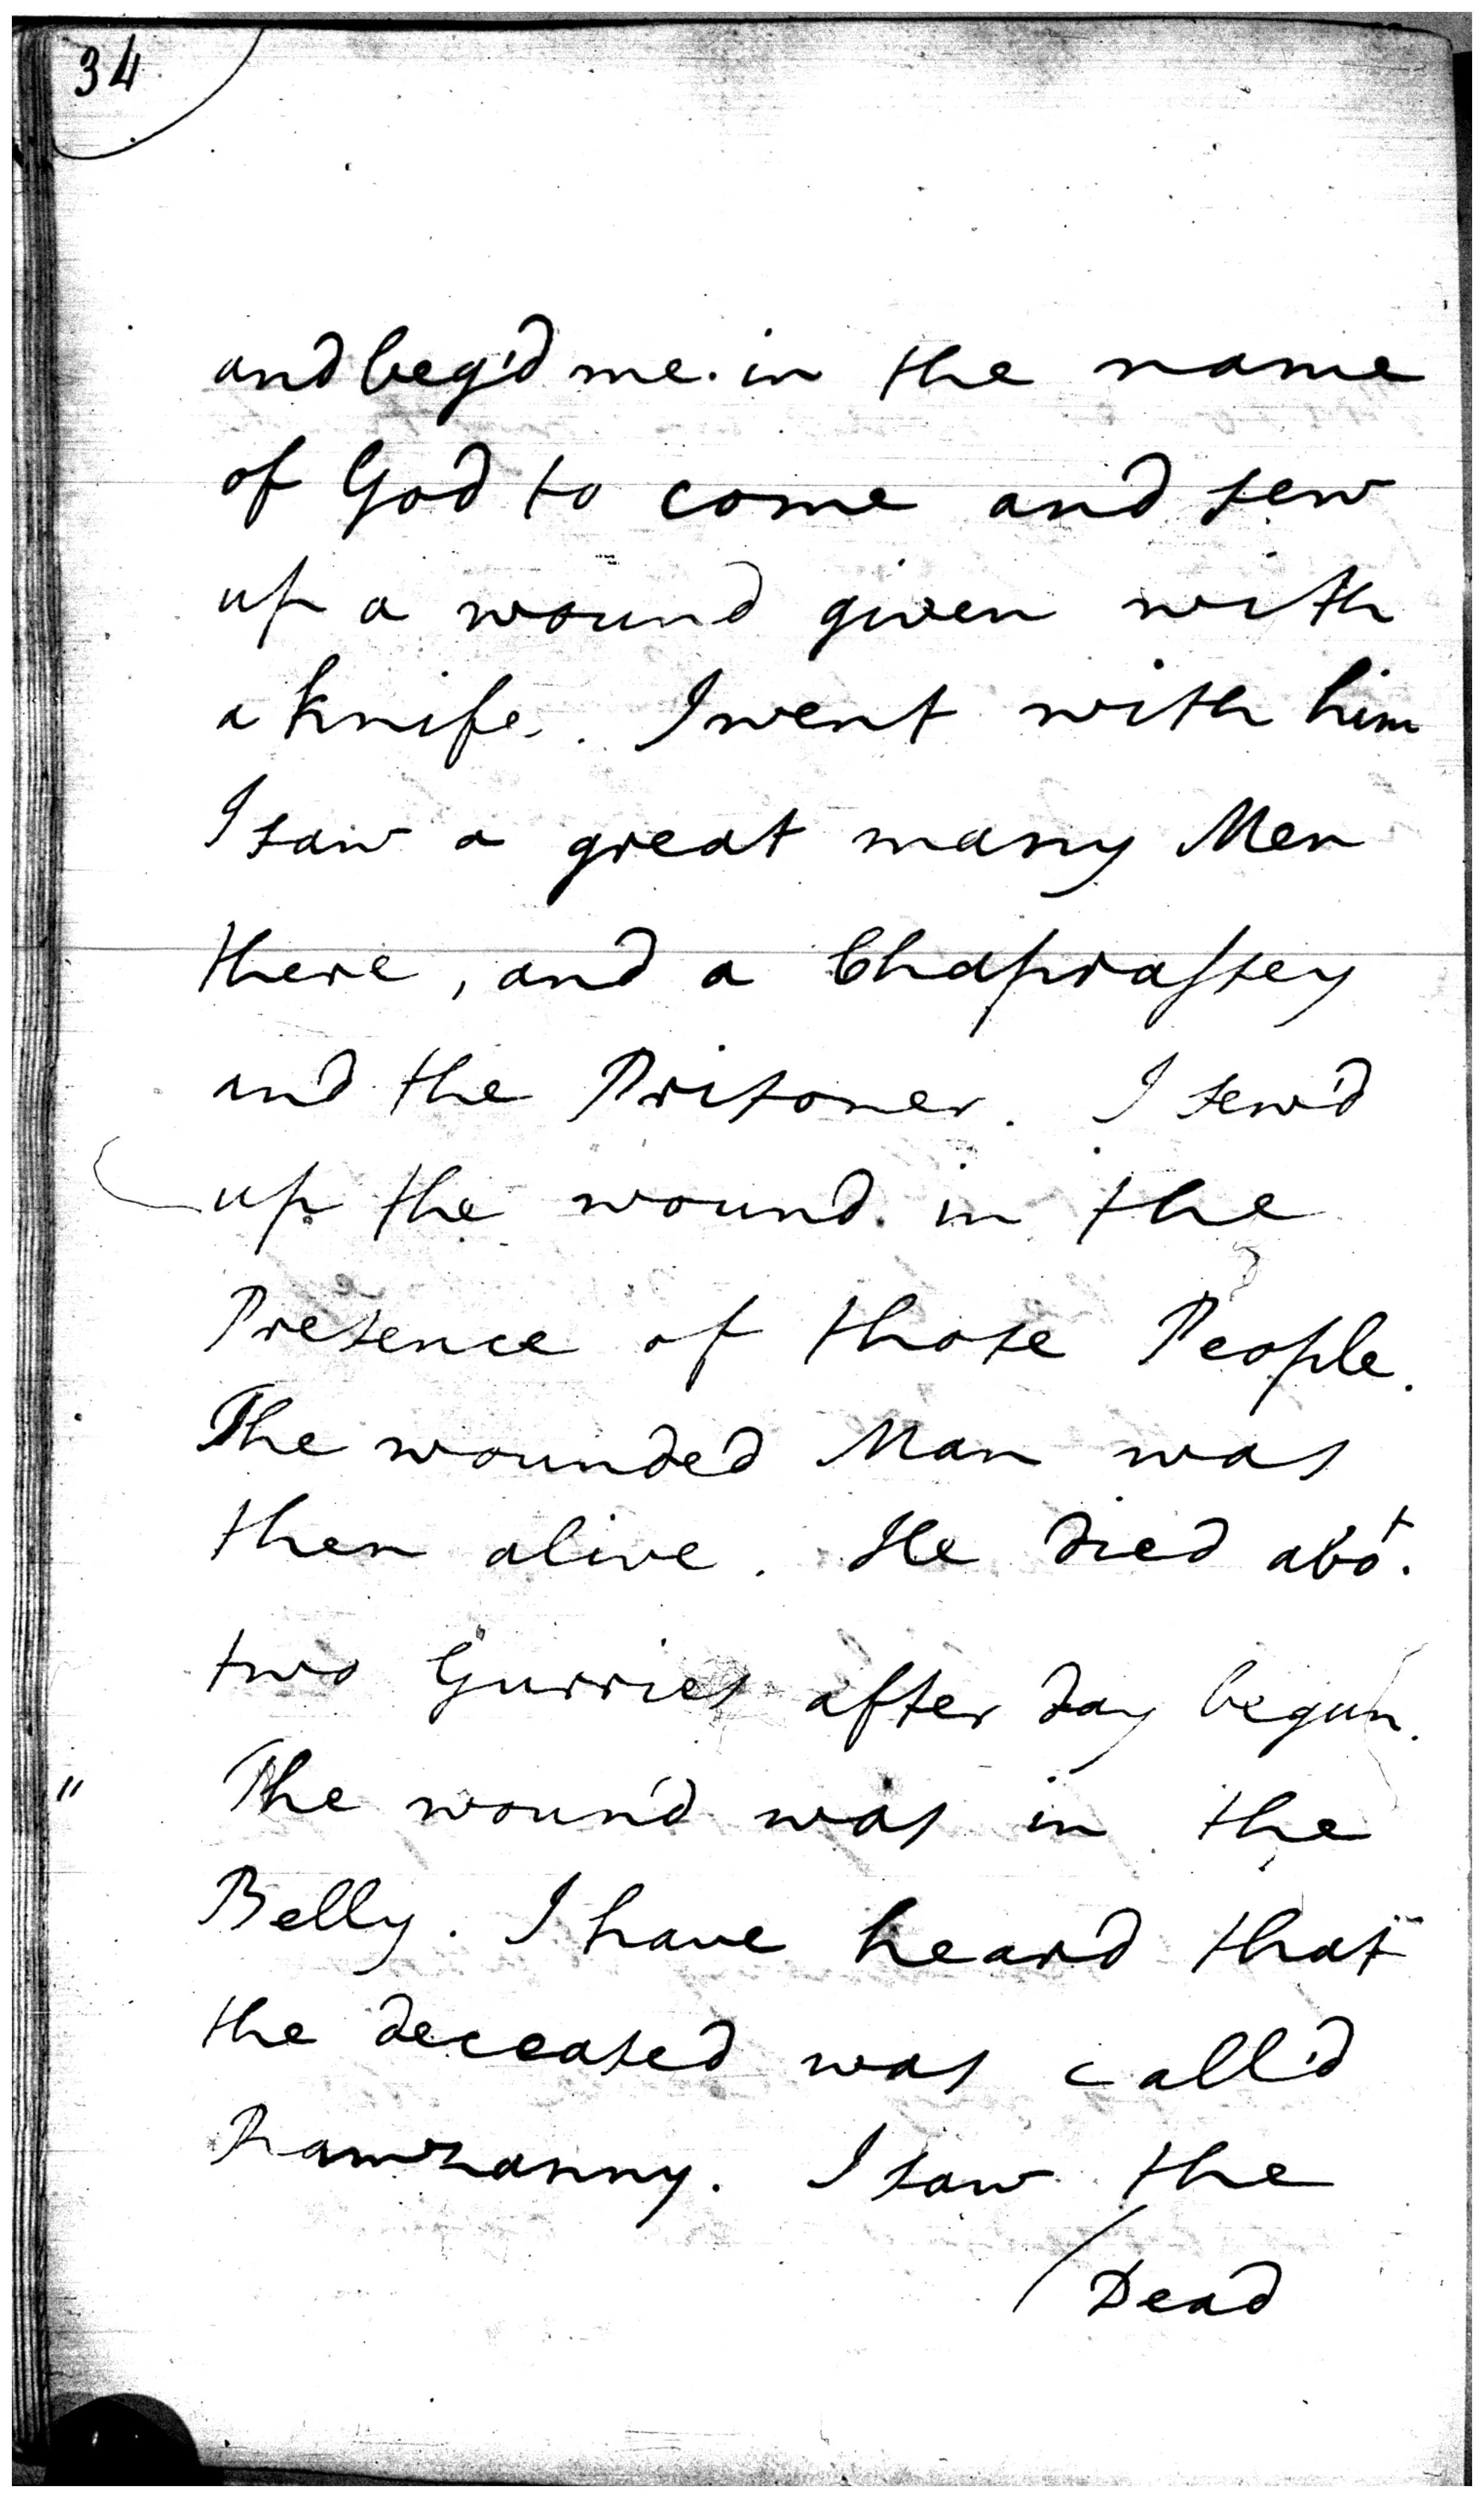 34
and beg'd me in the name
of God to come and sew
up a wound given with
a knife. I went with him
I saw a great many Men
there, and a Chaprassey
and the Prisoner. I sew'd
up the wound in the
Presence of those People.
The wounded Man was
then alive. He died abot.
two Gurries after day begun.
" The wound was in the
Belly. I have heard that
the deceased was call'd
Ramzanny. I saw the
Dead